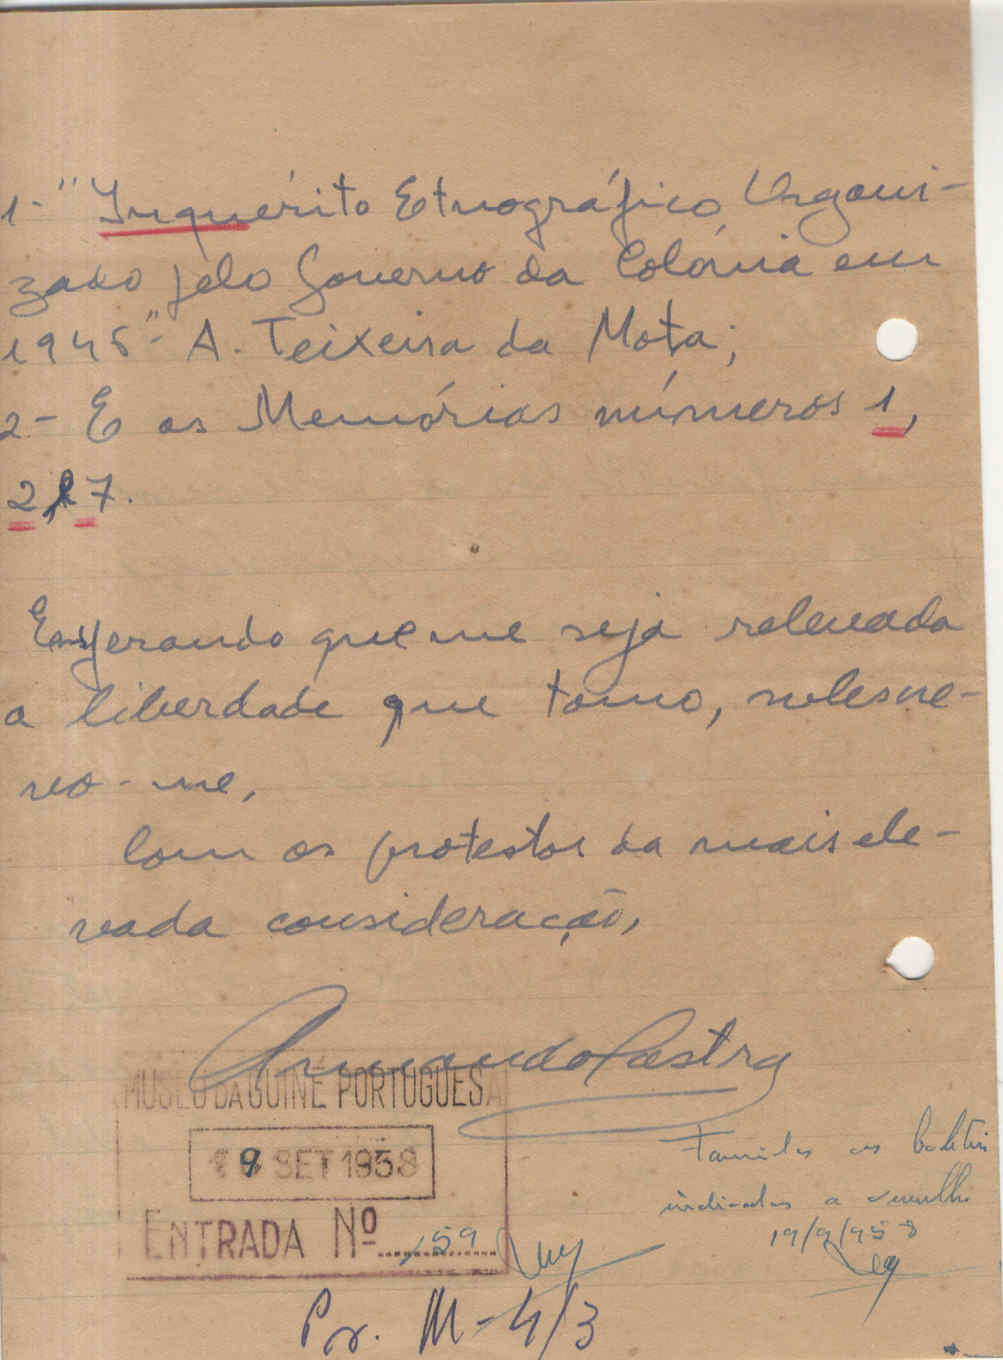 1- "Inquérito Etnográfico Organi-
zado pelo Governo da Colónia em
1946"- A. Teixeira da Mota;
2- E as Memórias números 1,
2, 7.
Esperando que me seja relevada
a liberdade que tomo, subscre-
vo-me,
Com os protestos da mais ele-
vada consideração,
Armando Castro
MUSEU DA GUINÉ PORTUGUESA
19 SET 1958
ENTRADA Nº 159
os boletins
indicados a vermelho
19/9/958
Pr. M-4/3